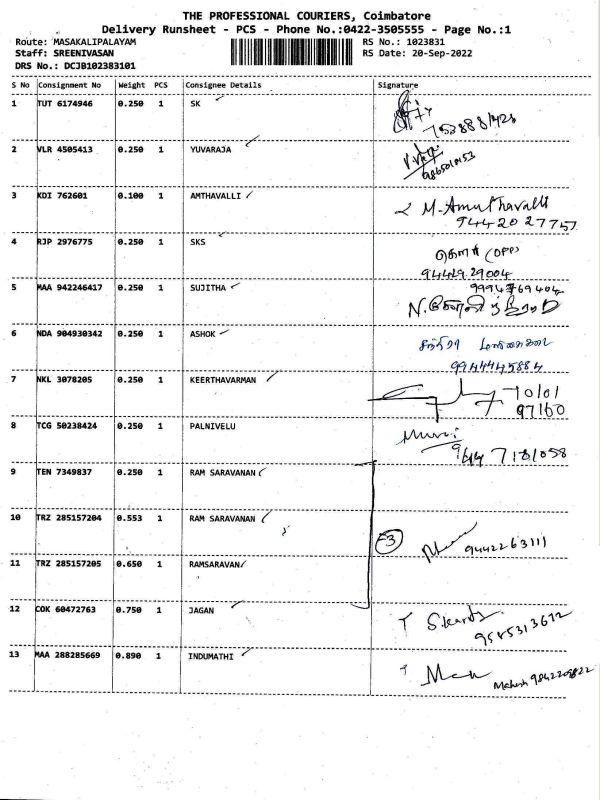 THE PROFESSIONAL COURIERS, Coimbatore
Delivery Runsheet - PCS - Phone No.:0422-3505555 - Page No.:1
Route: MASAKALIPALAYAM RS No.: 1023831
Staff: SREENIVASAN RS Date: 20-Sep-2022
DRS No.: DCJB102383101
S No Consignment No Weight PCS Consignee Details Signature
1 TUT 6174946 0.250 1 SK
2 VLR 4505413 0.250 1 YUVARAJA
3 KDI 762601 0.100 1 AMTHAVALLI M.Amuthavalli
94420 27757
4 RJP 2976775 0.250 1 SKS
94429 29004
5 MAA 942246417 0.250 1 SUJITHA 9994769404
6 NDA 904930342 0.250 1 ASHOK
9944445884
7 NKL 3078205 0.250 1 KEERTHAVARMAN
97160
8 TCG 50238424 0.250 1 PALNIVELU
9 TEN 7349837 0.250 1 RAM SARAVANAN
10 TRZ 285157204 0.553 1 RAM SARAVANAN
3 9442263111
11 TRZ 285157205 0.650 1 RAMSARAVAN
12 COK 60472763 0.750 1 JAGAN
9585313672
13 MAA 288285669 0.890 1 INDUMATHI
Mahesh 9842205822